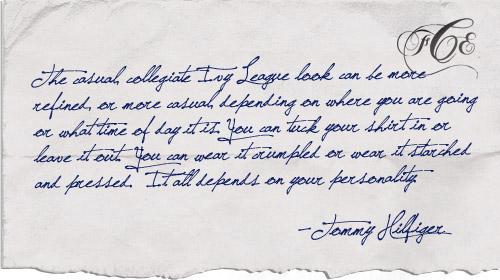 FCE
The casual, collegiate Ivy League look can be more
refined, or more casual, depending on where you are going
or what time of day it is. You can tuck your shirt in or
leave it out. You can wear it crumpled or wear it starched
and pressed. It all depends on your personality.
-Tommy Hilfiger